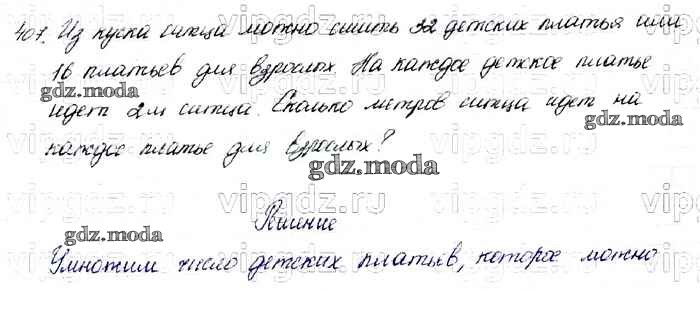 407. Из куска ситца можно сшить 32 детских платья или
16 платьев для взрослых. На каждое детское платье
идет 2 м ситца. Сколько метров ситца идет на
каждое платье для взрослых?
Решение
Умножим число детских платьев, которое можно
gdz.moda
gdz.moda
gdz.moda
gdz.moda
gdz.moda
vipgdz.ru